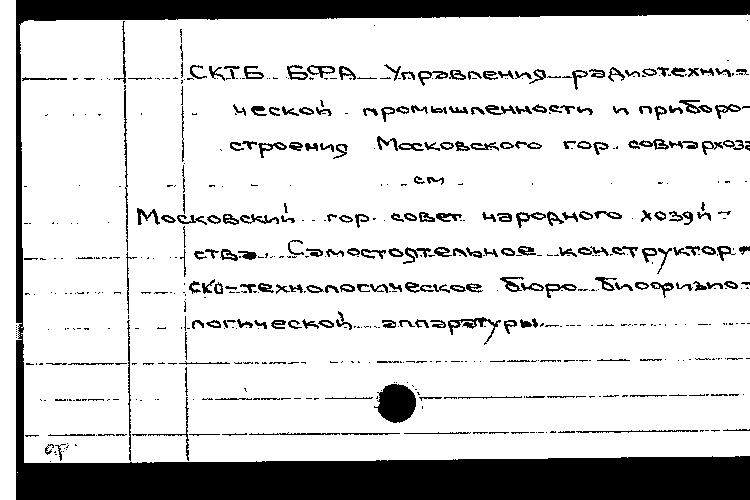 СКТБ БФА Управления радиотехни-
ческой промышленности и приборо-
строения Московского гор. совнархоза
см
Московский гор. совет народного хозяй-
ства. Самостоятельное конструктор-
ско-технологическое бюро биофизио-
логической аппаратуры.